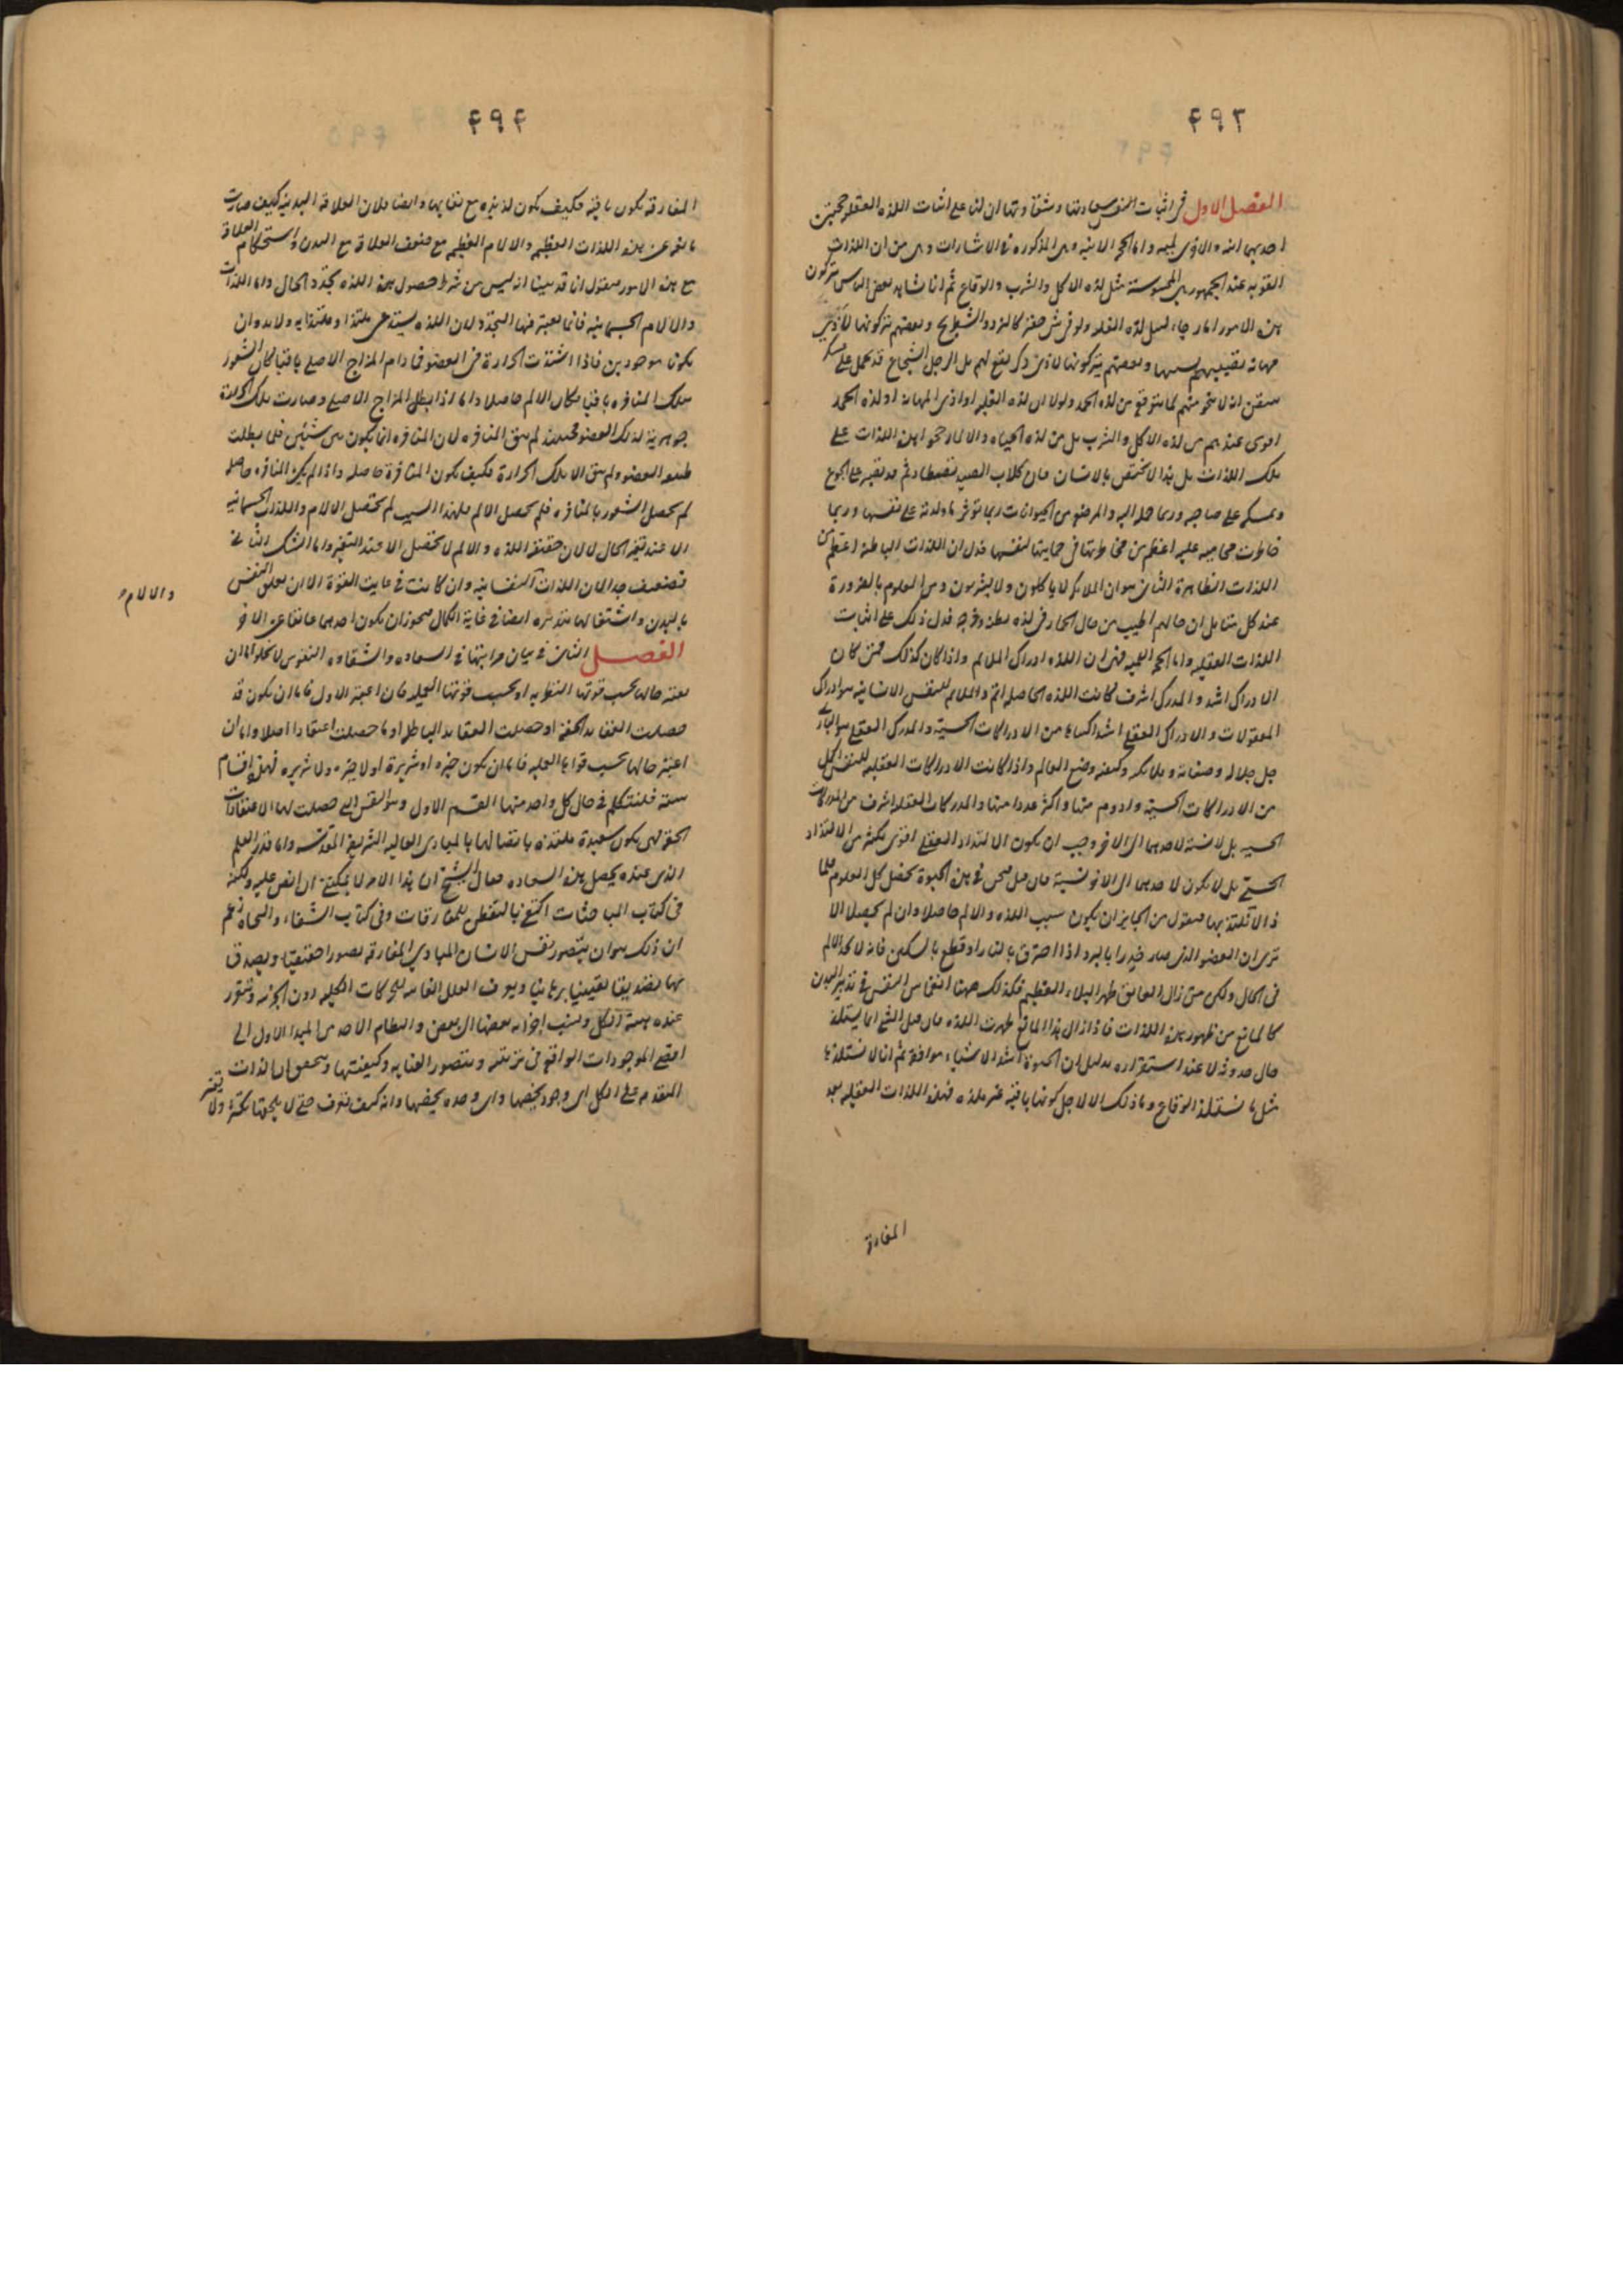 ٤٩٣
الفصل الاول في اثبات النفس سعادتها وشقاوتها ان لنا على اثبات اللذه العقليه حجتين
احديهما انيه والاخرى لميه واما الحجه الانيه وهى المذكوره في الاشارات وهى من ان اللذات
القويه عند الجمهور هى المحسوسة مثل لذه الاكل والشرب والوقاع ثم انا نشاهد بعض الناس يتركون
هذه الامور اما رجاء لنيل لذه الغلبه ولو في شئ حقير كالنرد والشطرنج وبعضهم يتركونها لتأذى
مهانه تصيبهم بسببها وبعضهم يتركونها لادنى ذكر يقع لهم بل الرجل الشجاع قد يحمل على عسكر
تيقن انه لا ينجو منهم لما يتوقع من لذه الحمد ولولا ان لذه الغلبه او اذى المهانه او لذه الحمد
اقوى عندهم من لذه الاكل والشرب بل من لذه الحياه والا لما رجحوا هذه اللذات على
تلك اللذات بل هذا لا يختص بالانسان فان كلاب الصيد تصطاد ثم قد تصبر على الجوع
وتمسكه على صاحبه وربما حمله اليه والمرضع من الحيوانات ربما تؤثر ما ولدته على نفسها وربما
خاطرت محاميه عليه اعظم من مخاطرتها في حمايتها لنفسها فدل ان اللذات الباطنه اعظم من
اللذات الظاهرة الثاني هو ان الملائكه لا ياكلون ولا يشربون ومن المعلوم بالضرورة
عند كل متأمل ان حالهم اطيب من حال الحمار في لذه بطنه وفرجه فدل ذلك على اثبات
اللذات العقليه واما الحجه اللميه فهى ان اللذه ادراك الملائم واذا كان كذلك فمتى كان
الادراك اشد والمدرك اشرف كانت اللذه الحاصله اتم والملائم للنفس الانسانيه هو ادراك
المعقولات والادراك العقلى اشد اكتناها من الادراكات الحسية والمدرك العقلى هو البارى
جل جلاله وصفاته وملائكته وكيفيه وضع العالم واذا كانت الادراكات العقليه للنفس اكمل
من الادراكات الحسيه وادوم منها واكثر عددا منها والمدركات العقليه اشرف من المدركات
الحسيه بل لا نسبة لاحدهما الى الاخر وجب ان يكون الالتذاذ العقلى اقوى بكثير من الالتذاذ
الحسى بل لا يكون لاحدهما الى الاخر نسبة فان قيل فنحن في هذه الحيوة تحصل لنا العلوم فلماذا
لا نلتذ بها فنقول من الجايز ان يكون سبب اللذه والالم حاصلا وان لم يحصلا الا
ترى ان العضو الذى صار خدرا بالبرد اذا احترق بالنار او قطع بالسكين فانه لا يحد الالم
في الحال ولكن متى زال العايق ظهر البلاء العظيم فكذلك ههنا انغماس النفس في تدبير البدن
كالمانع من ظهور هذه اللذات فاذا زال هذا المانع ظهرت اللذه فان قيل الشئ انما يستلذ
حال حدوثه لا عند استقراره بدليل ان الحيوة اشد الاشياء موافقة ثم انا لا نستلذ بها
مثل ما نستلذ الوقاع وما ذلك الا لاجل كونها باقية غير ملذه فهذه اللذات العقليه بعد
المفارقة
٤٩٤
المفارقه تكون باقيه فكيف تكون لذيذه مع بقايها وايضا فلان العلاقه البدنيه كيف صارت
مانعه عن هذه اللذات العظيمه والالام العظيمه مع ضعف العلاقه مع البدن واستحكام العلاقة
مع هذه الامور فنقول انا قد بينا انه ليس من شرط حصول هذه اللذه تجدد الحال واما اللذات
والالام الجسمانيه فانما يعتبر فيها التجدد لان اللذه يستدعى ملتذا وملتذا به ولا بد وان
يكونا موجودين فاذا اشتدت الحرارة في العضو فما دام المزاج الاصلى باقيا كان الشعور
بتلك المنافره باقيا فكان الالم حاصلا واما اذا بطل المزاج الاصلى وصارت تلك الحرارة
جوهرية لذلك العضو فحينئذ لم يبق المنافره لان المنافره انما يكون بين شيئين فلما بطلت
طبيعه العضو ولم يبق الا تلك الحرارة فكيف يكون المنافرة حاصله واذا لم يكن المنافره حاصله
لم يحصل الشعور بالمنافره فلم يحصل الالم فلهذا السبب لم تحصل الالام واللذات الجسمانيه
الا عند تغير الحال لا لان حقيقه اللذه والالم لا تحصل الا عند التغير واما الشك الثانى
فضعيف جدا لان اللذات النفسانيه وان كانت في غايت القوة الا ان تعلق النفس
والالام
بالبدن واشتغالها بتدبيره ايضا في غاية الكمال فيجوز ان يكون احدهما عائقا عن الاخر
الفصل الثاني في بيان مراتبها في السعاده والشقاوه النفوس لا تخلو اما ان
يعتبر حالها بحسب قوتها النظريه او بحسب قوتها العمليه فان اعتبر الاول فاما ان يكون قد
حصلت العقايد الحقه او حصلت العقايد الباطله او ما حصلت اعتقادا اصلا واما ان
اعتبر حالها بحسب قواها العمليه فاما ان يكون خيره او شريرة او لا خيره ولا شريره فهذه اقسام
سته فلنتكلم في حال كل واحد منها القسم الاول وهو النفس التى حصلت لها الاعتقادات
الحقه فهى يكون سعيدة ملتذه باتصالها بالمبادى العاليه الشريفه المقدسه واما قدر العلم
الذى عنده يحصل هذه السعاده فقال الشيخ ان هذا الامر لا يمكننى ان انص عليه ولكنه
في كتاب المباحثات اكتفى بالتفطن للمفارقات وفي كتاب الشفاء والنجاة زعم
ان ذلك هو ان يتصور نفس الانسان المبادى المفارقه تصورا حقيقيا ويصدق
بها تصديقا يقينيا برهانيا ويعرف العلل الغائيه للحركات الكليه دون الجزئيه ويتقرر
عنده هيئة الكل ونسب اجزائه بعضها الى بعض والنظام الاخذ من المبدا الاول الى
اقصى الموجودات الواقعه في ترتيبه ويتصور العنايه وكيفيتها ويتحقق ان الذات
المتقدمه على الكل اى وجود يخصها واى وحده يخصها وانه كيف يعرف حتى لا يلحقها تكثر ولا تغير